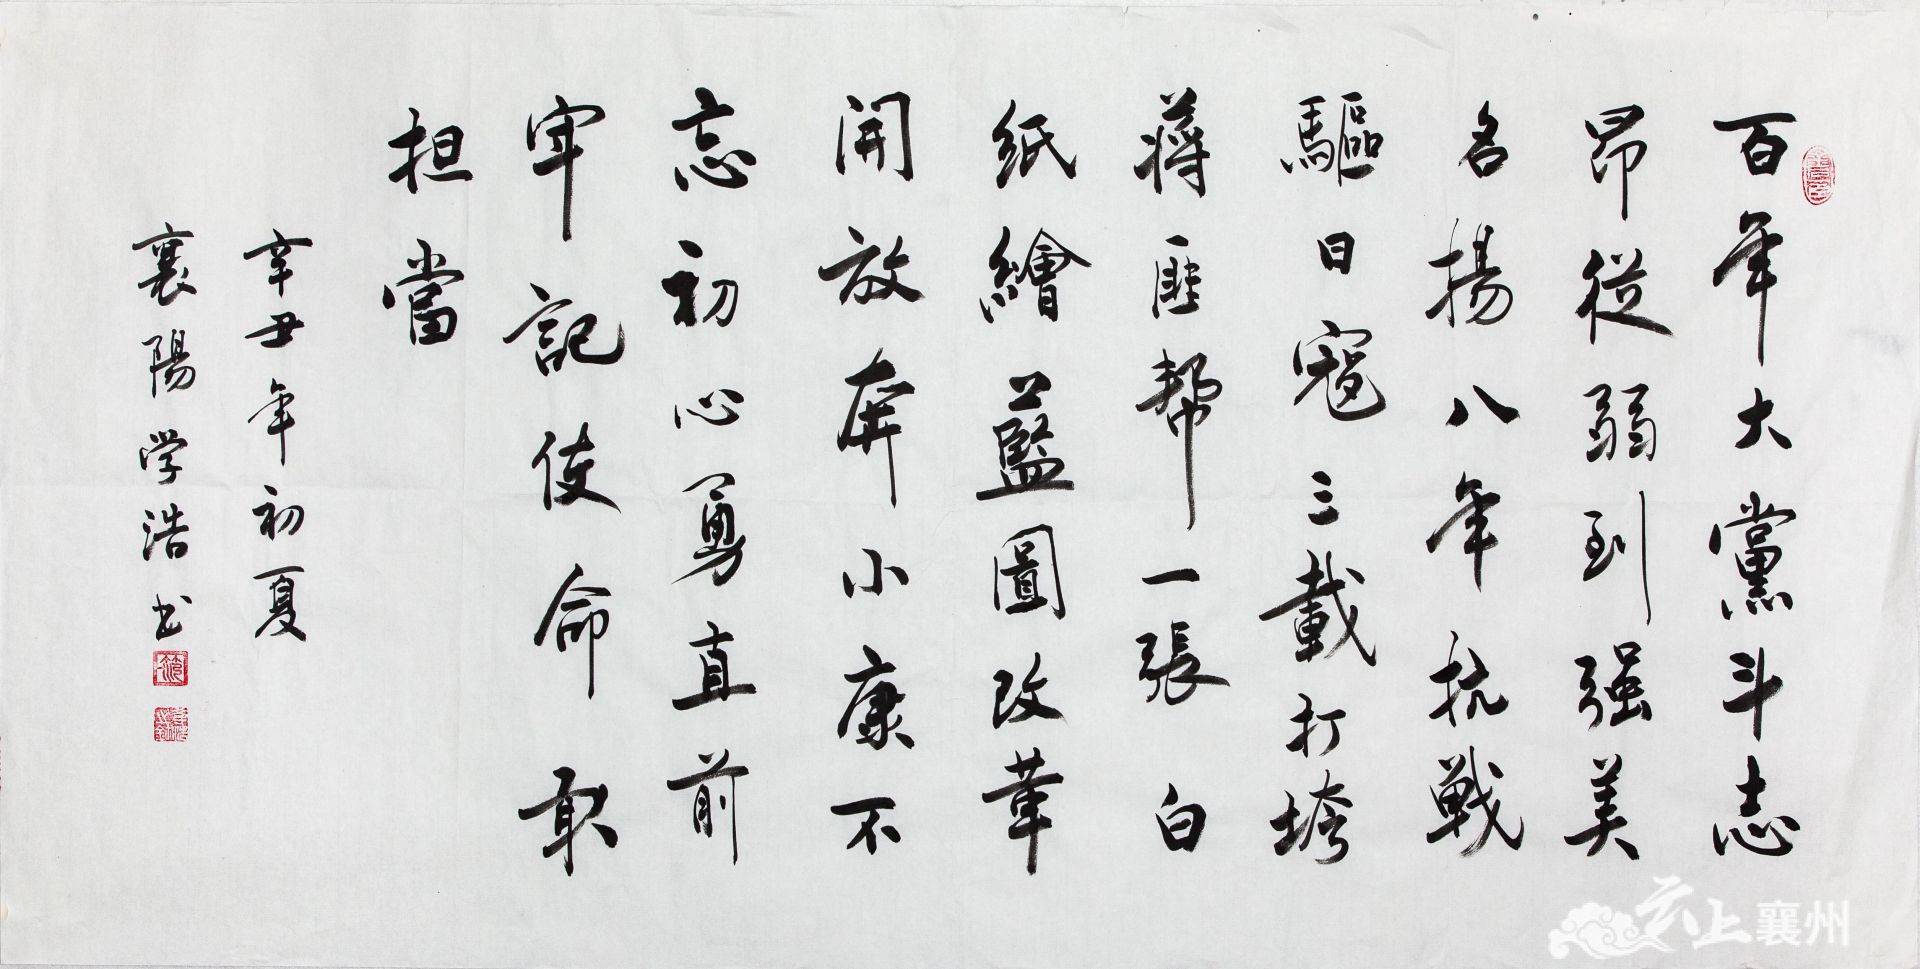 百年大黨斗志
昂從弱到强美
名揚八年抗戰
驅日寇三載打垮
蔣匪幫一張白
紙繪藍圖改革
開放奔小康不
忘初心勇直前
牢記使命敢
担當
辛丑年初夏
襄陽学浩书
云上襄州